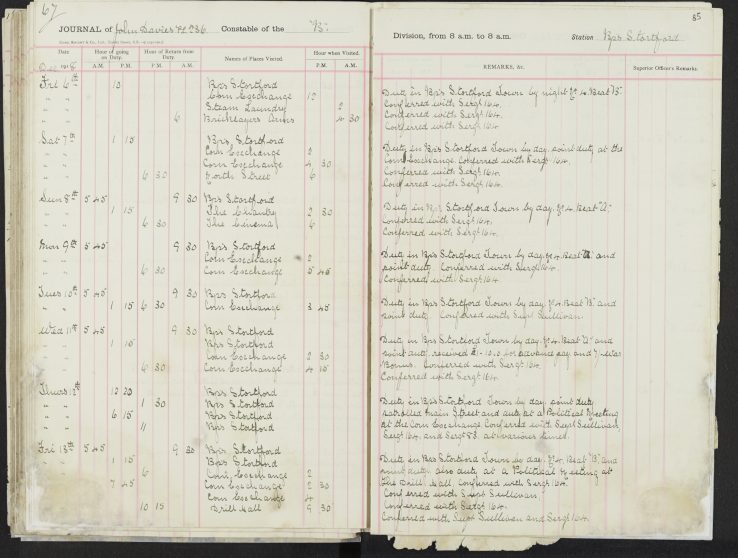 67
JOURNAL of John Davies PC 236 Constable of the "B"
Date Hour of going on Duty. Hour of Return from Duty. Names of Places Visited. Hour when Visited.
Dec 1918 A.M. P.M. A.M. P.M. P.M. A.M.
Fri 6th 10 Bps Stortford
" " Corn Exchange 12
" " Steam Laundry 2
" " 6 Bricklayers Arms 4 30
Sat 7th 1 15 Bps Stortford
" " Corn Exchange 2
" " Corn Exchange 4 30
" " 6 30 North Street 6
Sun 8th 5 45 9 30 Bps Stortford
" " 1 15 The Chantry 2 30
" " 6 30 The Cinema 6
Mon 9th 5 45 9 30 Bps Stortford
" " Corn Exchange 2
" " 6 30 Corn Exchange 5 45
Tues 10th 5 45 9 30 Bps Stortford
" " 1 15 6 30 Corn Exchange 3 45
Wed 11th 5 45 9 30 Bps Stortford
" " 1 15 Bps Stortford
" " Corn Exchange 2 30
" " 6 30 Corn Exchange 4 15
Thurs 12th 12 20 Bps Stortford
" " 1 30 Bps Stortford
" " 6 15 Bps Stortford
" " 11 Bps Stortford
Fri 13th 5 45 9 30 Bps Stortford
" " 1 15 Bps Stortford
6 Corn Exchange 2
7 45 Corn Exchange 2 30
Corn Exchange 4
10 15 Drill Hall 9 30
85
Division, from 8 a.m. to 8 a.m. Station Bps Stortford
REMARKS, &c. Superior Officer's Remarks.
Duty in Bps Stortford Town by night No 4 Beat "B".
Conferred with Sergt 164.
Conferred with Sergt 164.
Conferred with Sergt 164.
Duty in Bps Stortford Town by day, point duty at the
Corn Exchange. Conferred with Sergt 164.
Conferred with Sergt 164.
Conferred with Sergt 164.
Duty in Bps Stortford Town by day, No 4 Beat "A".
Conferred with Sergt 164.
Conferred with Sergt 164.
Duty in Bps Stortford Town by day, No 4 Beat and
point duty. Conferred with Sergt 164.
Conferred with Sergt 164.
Duty in Bps Stortford Town by day, No 4 Beat "B" and
point duty. Conferred with Supt Sullivan.
Duty in Bps Stortford Town by day, No 4 Beat "A" and
point duty, received £1-10.0 for advance pay and War
Bonus. Conferred with Sergt 164.
Conferred with Sergt 164.
Duty in Bps Stortford Town by day, point duty
patrolled Main Street and duty at a Political Meeting
at the Corn Exchange. Conferred with Supt Sullivan
Sergt 164, and Sergt 83 at various times.
Duty in Bps Stortford Town by day, No 4 Beat "B" and
point duty, also duty at a Political Meeting at
the Drill Hall. Conferred with Sergt 164.
Conferred with Supt Sullivan.
Conferred with Sergt 164.
Conferred with Supt Sullivan and Sergt 164.